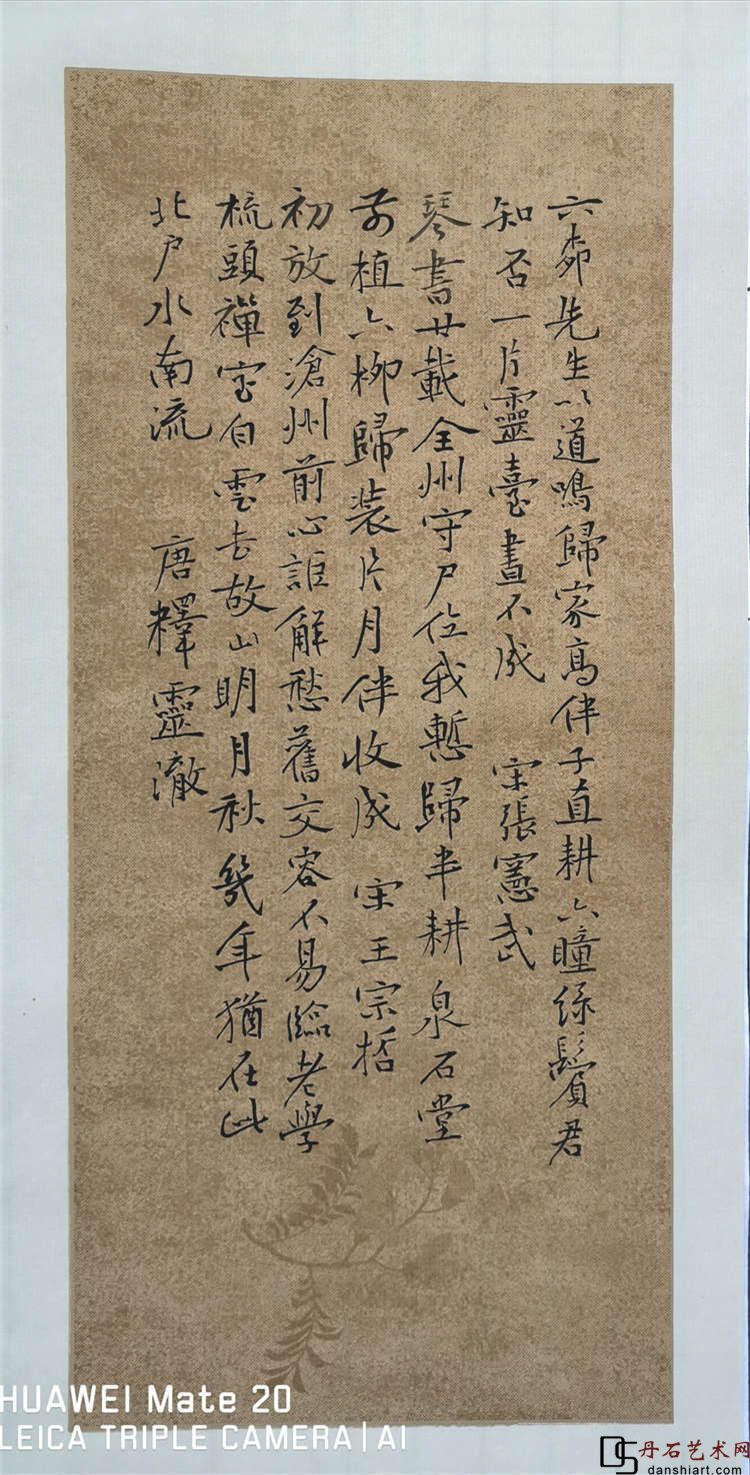 六 先生以道鳴歸家高伴子真耕六瞳綠鬢君
知否一片靈臺畫不成 宋張憲武
琴書廿載全州守尸位我慙歸未耕泉石堂
前植六柳歸裝片月伴收成 宋王宗哲
初放到滄州前心詎解愁舊交容不易臨老學
梳頭禪室白雲去故山明月秋幾年猶在此
北戶水南流 唐釋靈澈
HUAWEI Mate 20
LEICA TRIPLE CAMERA | AI
丹石艺术网
danshiart.com